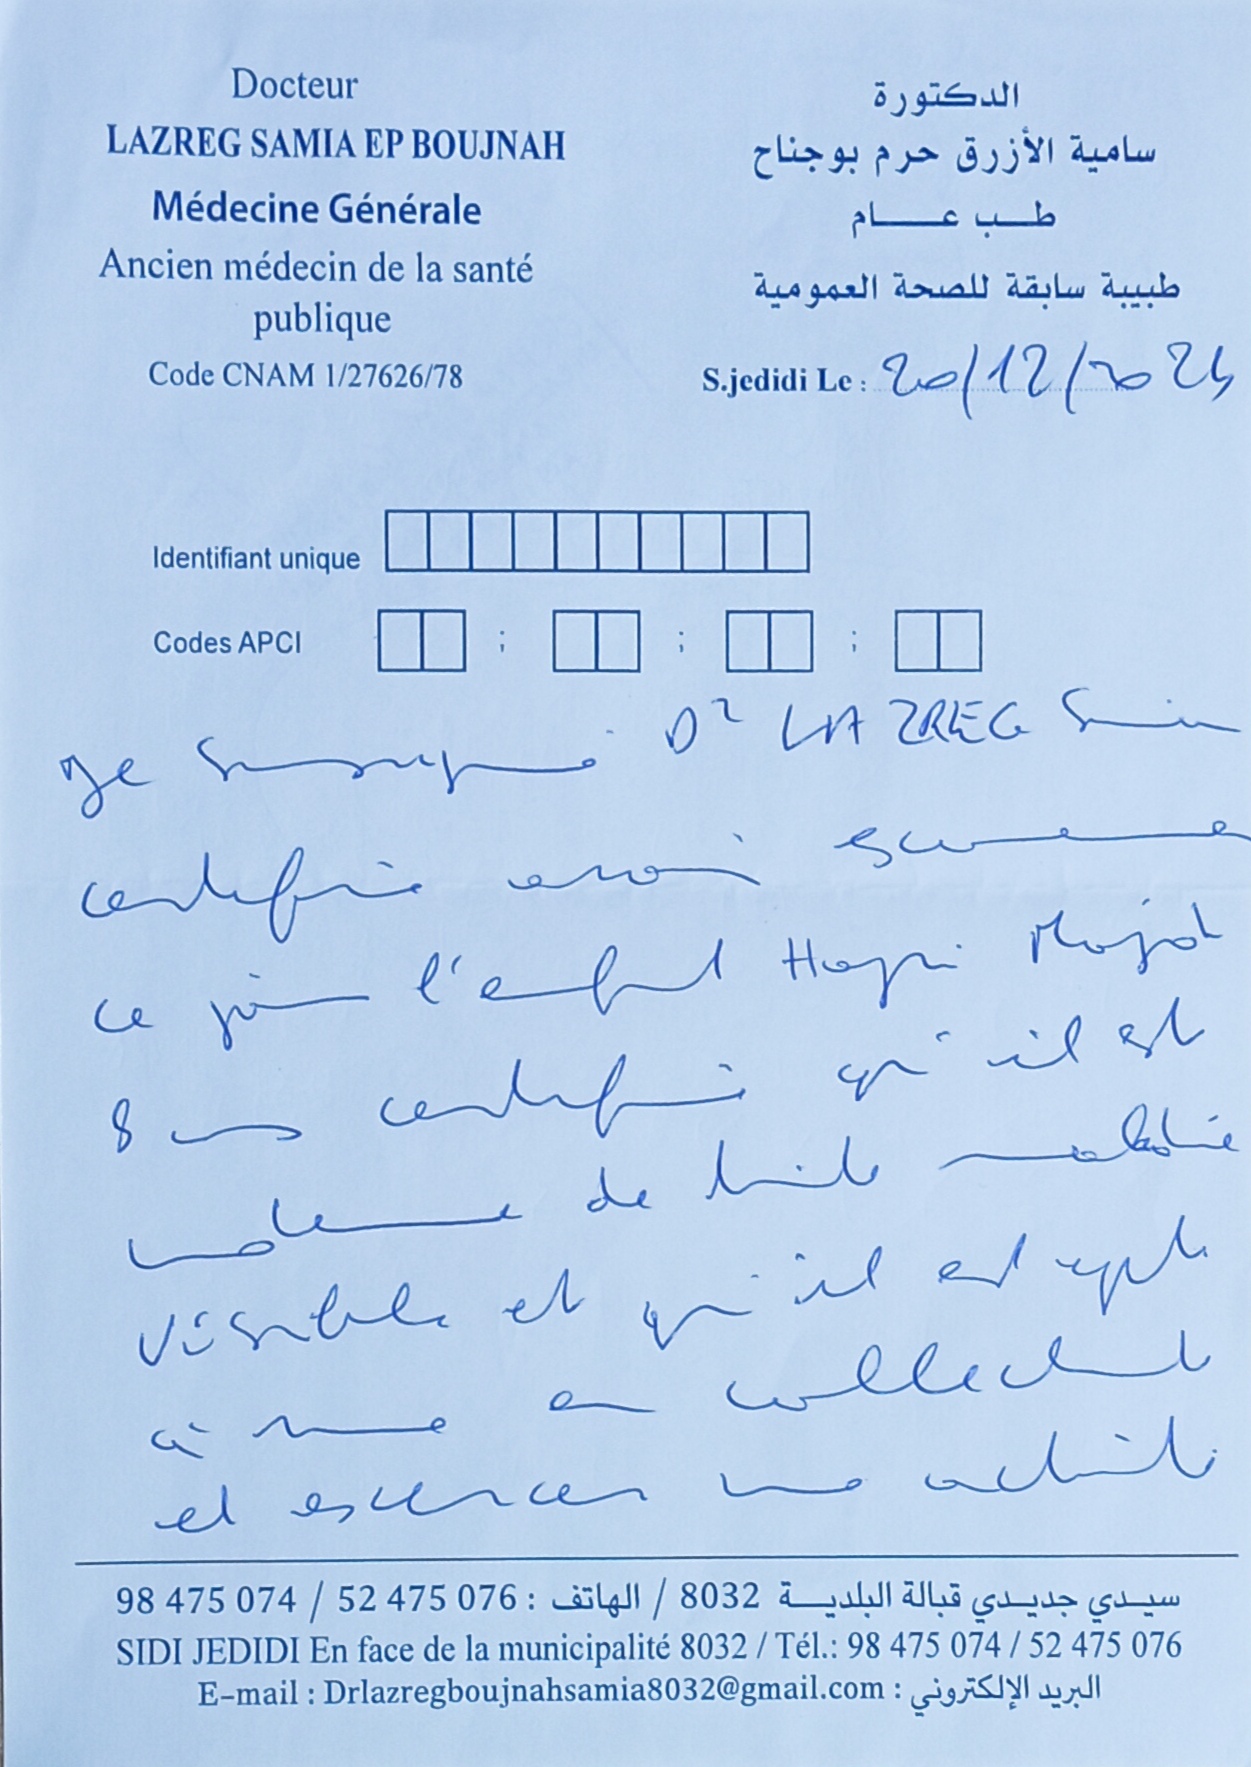 Docteur
LAZREG SAMIA EP BOUJNAH
Médecine Générale
Ancien médecin de la santé
publique
Code CNAM 1/27626/78
الدكتورة
سامية الأزرق حرم بوجناح
طب عام
طبيبة سابقة للصحة العمومية
S.jedidi Le : 20/12/2024
Identifiant unique
Codes APCI ; ; ;
Je soussigné Dr LAZREG Samia
certifie avoir examiné
ce jour l'enfant
8 ans certifie qu'il est
indemne de toute maladie
visible et qu'il est apte
à vivre en collectivité
et exercer une activité
سيدي جديدي قبالة البلدية 8032 / الهاتف : 52 475 076 / 98 475 074
SIDI JEDIDI En face de la municipalité 8032 / Tél.: 98 475 074 / 52 475 076
E-mail : Drlazregboujnahsamia8032@gmail.com : البريد الإلكتروني